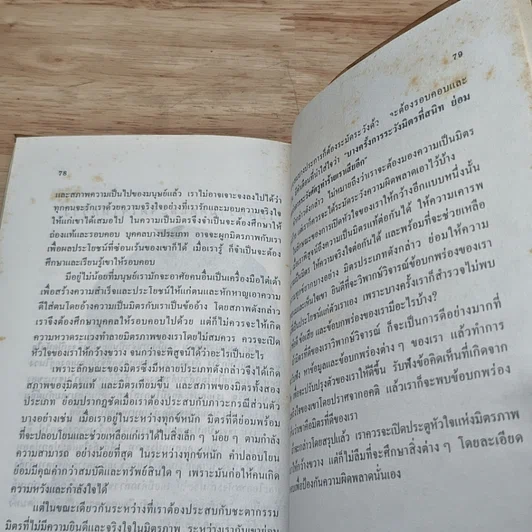 78
และสภาพความเป็นไปของมนุษย์แล้ว เราไม่อาจเจาะจงลงไปได้ว่า
ทุกคนจะรักเราด้วยความจริงใจอย่างที่เรารักและมอบความจริงใจ
ให้แก่เขาได้เสมอไป ในความเป็นมิตรจึงจำเป็นจะต้องศึกษาให้
ถ่องแท้และรอบคอบ บุคคลบางประเภท อาจจะผูกมิตรภาพกับเรา
เพื่อผลประโยชน์ที่ซ่อนเร้นของเขาก็ได้ เมื่อเรารู้ ก็จำเป็นจะต้อง
ศึกษาและเรียนรู้เขาให้รอบคอบ
มีอยู่ไม่น้อยที่มนุษย์เรามักจะอาศัยคนอื่นเป็นเครื่องมือไต่เต้า
เพื่อสร้างความสำเร็จและประโยชน์ให้แก่ตนและทักหาญเอาความ
ดีใส่ตนโดยอ้างความเป็นมิตรกับเราเป็นข้ออ้าง โดยสภาพดังกล่าว
เราจึงต้องศึกษาบุคคลให้รอบคอบไปด้วย แต่ก็ไม่ควรจะให้เกิด
ความหวาดระแวงทำลายมิตรภาพของเราโดยไม่สมควร ควรจะเปิด
หัวใจของเราให้กว้างขวาง จนกว่าจะพิสูจน์ได้ว่าอะไรเป็นอะไร
เพราะลักษณะของมิตรซึ่งมีหลายประเภทดังกล่าวจึงได้เกิด
สภาพของมิตรแท้ และมิตรเทียมขึ้น และสภาพของมิตรทั้งสอง
ประเภท ย่อมปรากฏชัดเมื่อเราต้องประสบกับภาวะกรณีส่วนตัว
บางอย่างเช่น เมื่อเราอยู่ในระหว่างทุกข์หนัก มิตรที่ดีย่อมพร้อม
ที่จะปลอบโยนและช่วยเหลือแก่เราได้ในสิ่งเล็ก ๆ น้อย ๆ ตามกำลัง
ความสามารถ อย่างน้อยที่สุด ในระหว่างทุกข์หนัก คำปลอบโยน
ย่อมมีคุณค่ากว่าสมบัติและทรัพย์สินใด ๆ เพราะมันก่อให้คนเกิด
ความหวังและกำลังใจได้
แต่ในขณะเดียวกันระหว่างที่เราต้องประสบกับชะตากรรม
มิตรที่ไม่มีความยินดีและจริงใจในมิตรภาพ ระหว่างเรากับเขาย่อม
79
ประการก็ต้องระมัดระวังตัว จะต้องรอบคอบและ
"บางครั้งการระวังมิตรที่สนิท ย่อม
ไม่หมายถึงว่าเราจะต้องมองความเป็นมิตร
จะได้ระมัดระวังความผิดพลาดเอาไว้บ้าง
การเปิดหัวใจของเราให้กว้างอีกแบบหนึ่งนั้น
พิสูจน์ถึงความเป็นมิตรแท้ต่อกันได้ ให้ความเคารพ
ให้ความจริงใจต่อกันได้ และพร้อมที่จะช่วยเหลือ
บางอย่าง มิตรประเภทดังกล่าว ย่อมให้ความ
ยินดีที่จะวิพากษ์วิจารณ์ข้อบกพร่องของเรา
ได้แก่ตัวเราเอง เพราะบางครั้งเราก็สำรวจไม่พบ
และข้อบกพร่องของเรามีอะไรบ้าง?
วิพากษ์วิจารณ์ ก็จะเป็นการดีอย่างมากที่
หาข้อมูลและข้อบกพร่องต่าง ๆ ของเรา แล้วทำการ
จะปรับปรุงตัวของเราให้ดีขึ้น รับฟังข้อคิดเห็นที่เกิดจาก
ของเขาโดยปราศจากอคติ แล้วเราก็จะพบข้อบกพร่อง
มิตรที่ดีของเรา
กล่าวโดยสรุปแล้ว เราควรจะเปิดประตูหัวใจแห่งมิตรภาพ
ให้กว้างขวาง แต่ก็ไม่ลืมที่จะศึกษาสิ่งต่าง ๆ โดยละเอียด
เพื่อป้องกันความผิดพลาดนั่นเอง